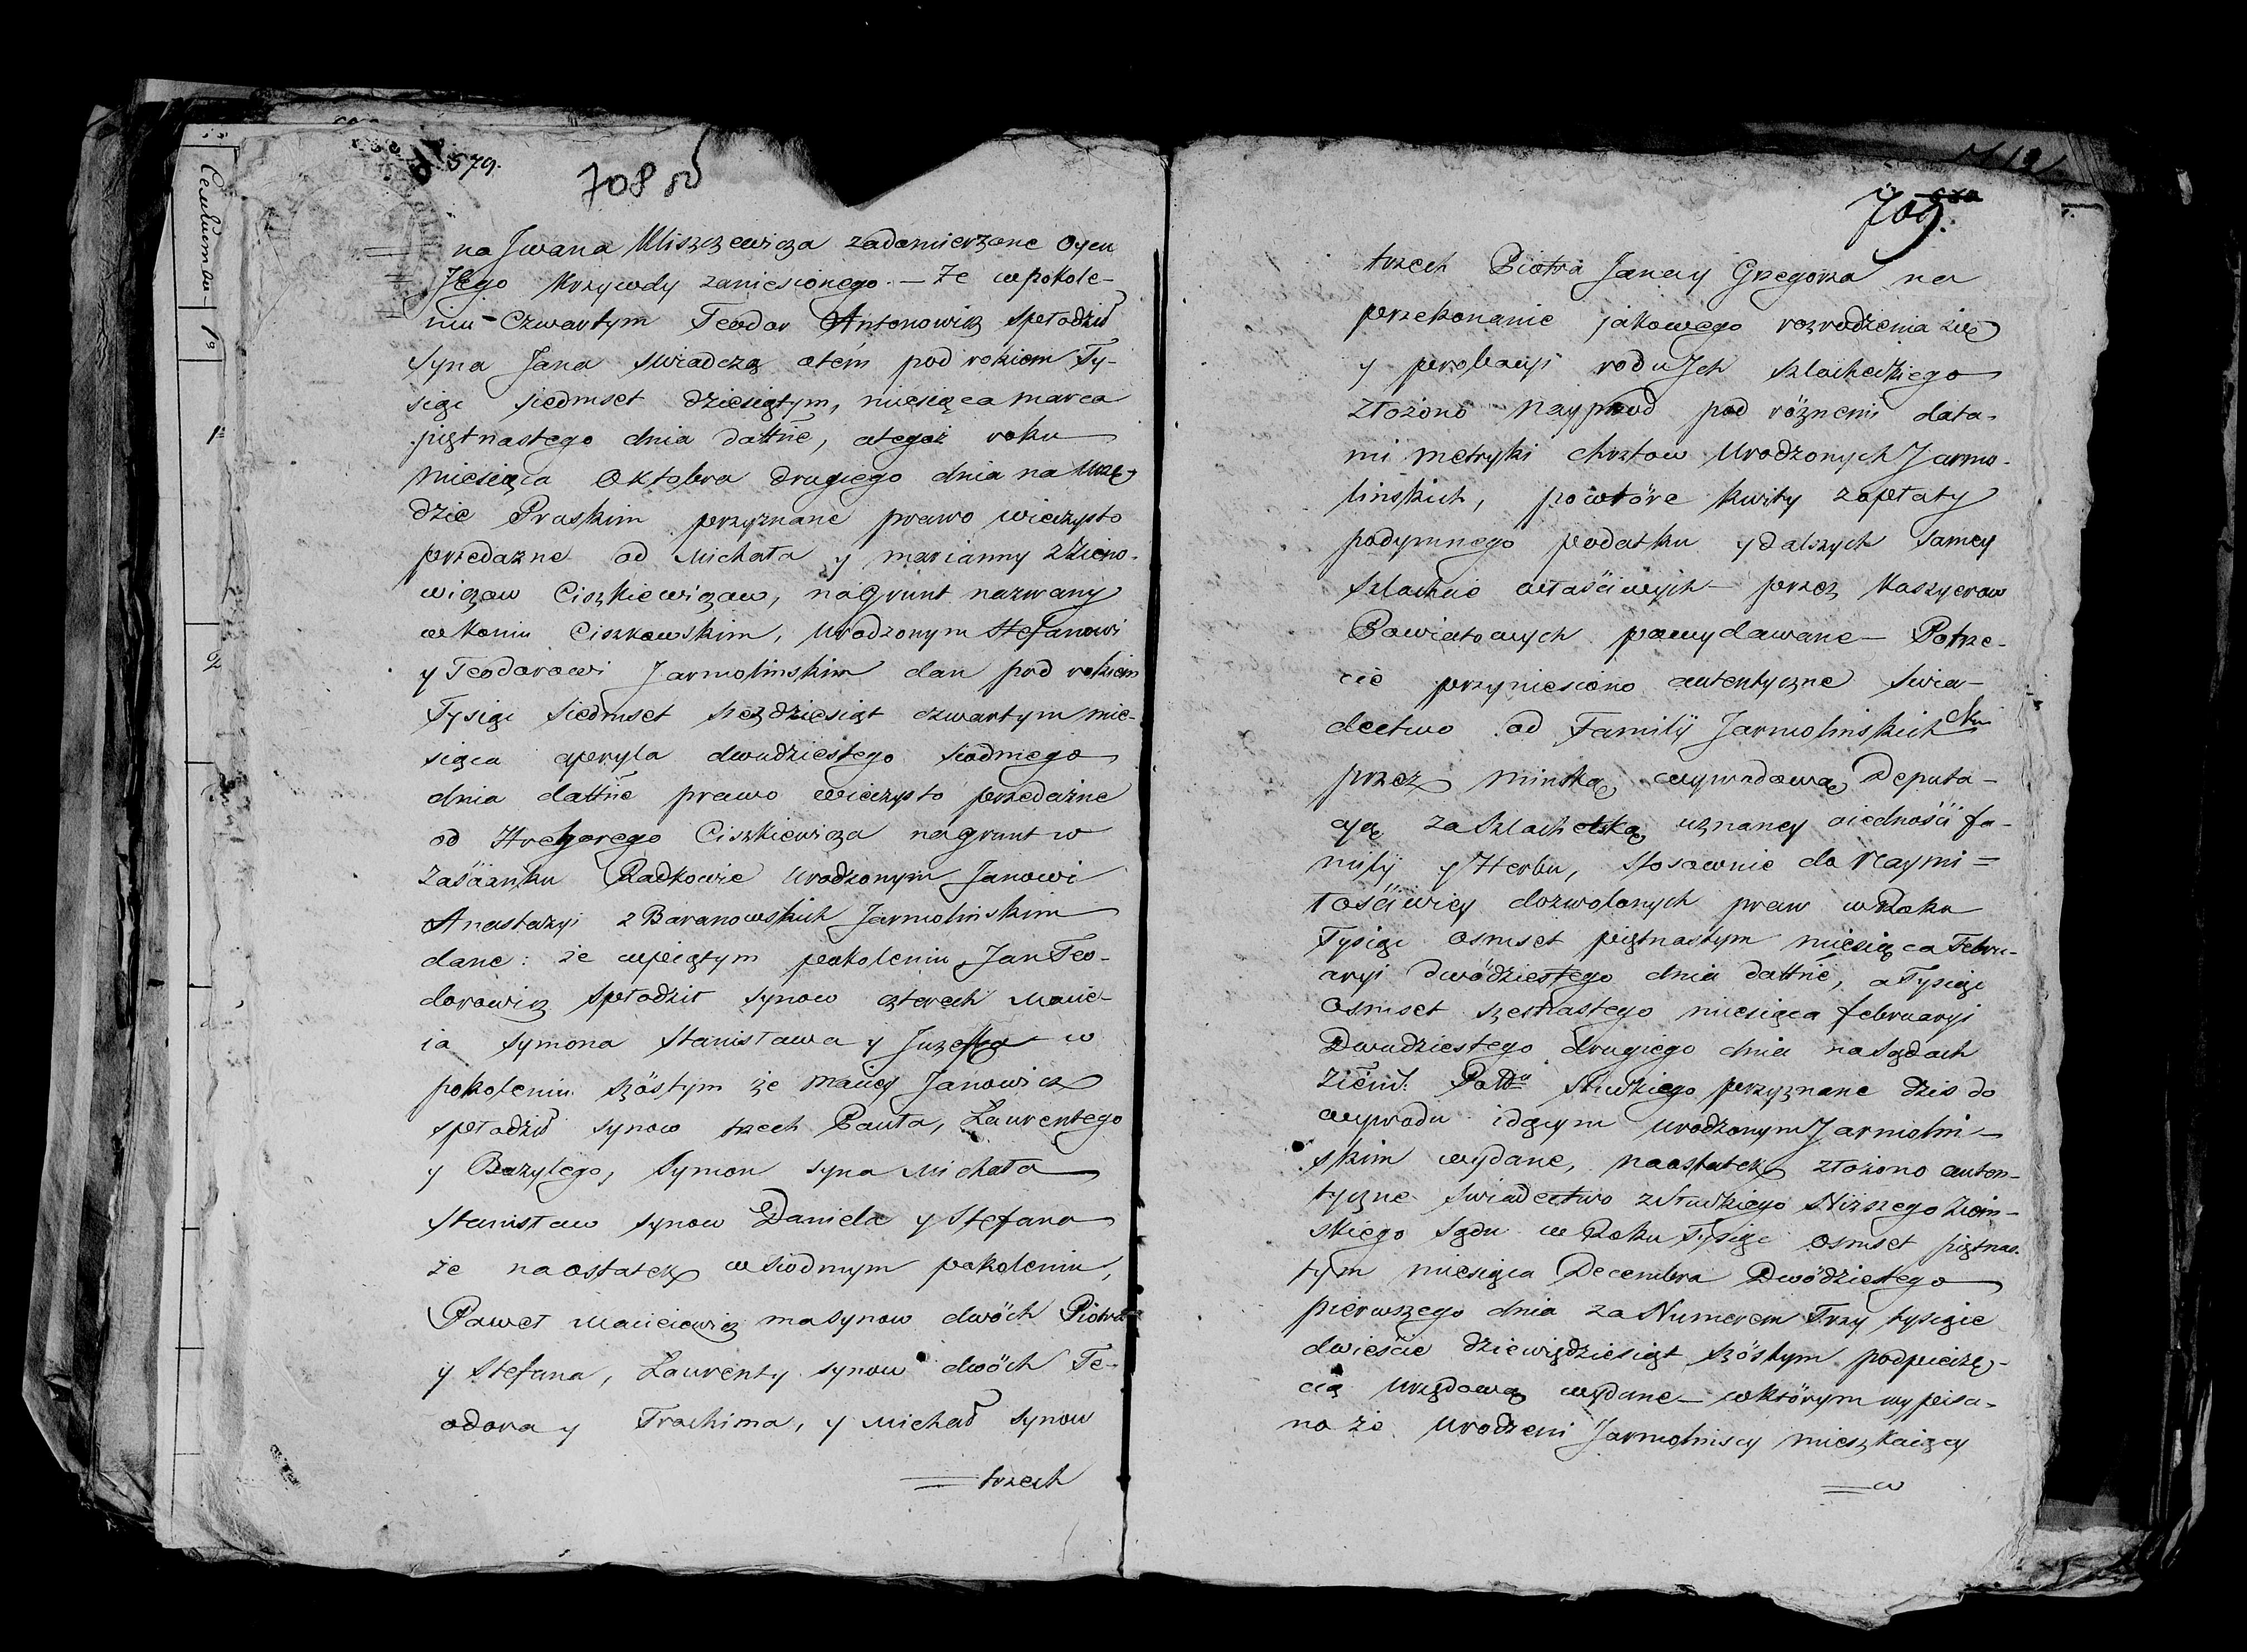 579.
708 об
na Jwana Kliszczewicza zadomierzone Oycu
Jego Krzywdy zaniesionego. — Ze w pokole-
niu Czwartym Teodor Antonowicz spłodził
Syna Jana swiadczą otém pod rokiem Ty-
siąc siedmset dziesiątym, miesiąca marca
piętnastego dnia dattne, ategoż roku
miesiąca Oktobra drugiego dnia na Urzę-
dzie Praskim przyznane prawo wieczysto
przedażne od Michała y marianny z Zieno-
wiczow Ciszkiewiczow, na grunt nazwany
w Koniu Ciszkowskim, Urodzonym Stefanowi
y Teodorowi Jarmolinskim dan pod rokiem
Tysiąc siedmset szezdziesiąt czwartym mie-
siąca apryla dwudziestego siodmego
dnia dattne prawo wieczysto przedażne
od Hrehorego Ciszkiewicza na grunt w
Zaścianku Radkowie urodzonym Janowi
Anastazyi z Baranowskich Jarmolinskim
dane: że w piątym pokoleniu Jan Teo-
dorowicz spłodził synow czterech Macie-
ia Symona Stanisława y Juzefa w
pokoleniu szóstym że Maciey Janowicz
spłodził synow trzech Pawła, Laurentego
y Bazylego, Symon syna Michała
Stanisław synow Daniela y Stefana
że naostatek w siodmym pokoleniu,
Paweł Macieiewicz ma synow dwóch Piotra
y Stefana, Laurenty synow dwóch Te-
odora y Trochima, y Michał synow
trzech
709.
trzech Piotra Janay Grzegorza na
przekonanie jakowego rozrodzenia się
y probacyi rodu Jch szlacheckiego
złożono Nayprzod pod róznemi data-
mi metryki chrztow Urodzonych Jarmo-
linskich, powtóre kwity zopłaty
podymnego podatku y dalszych samey
szlachcie właściwych — przez Kaszyerow
Powiatowych powydawane — Potrze-
cie przyniesiono autentyczne swia-
dectwo od Familij Jarmolinskich
przez minską wywodową Deputa-
cyą za Szlachetską uznaney oiedności fa-
milij y Herbu, stosownie do Naymi-
łościwiey dozwolonych praw w Roku
Tysiąc osmset piętnastym miesiąca Febru-
aryi dwódziestego dnia dattne, a Tysiąc
Osmset szesnastego miesiąca februaryi
Dwudziestego drugiego dnia na Sądach
Ziems: Pottu Słuckiego przyznane dzis do
wywodu idącym urodzonym Jarmolin-
skim wydane, naostatek złożono auten-
tyczne swiadectwo z Słuckiego Niższego Ziem-
skiego Sądu w Roku Tysiąc osmset piętnas-
tym miesiąca Decembra Dwódziestego
pierwszego dnia za Numerem Trzy tysiące
dwieście dziewiędziesiąt szóstym podpieczę-
cią Urzędową wydane — w którym wypisa-
no że Urodzeni Jarmolinscy mieszkaiący
w